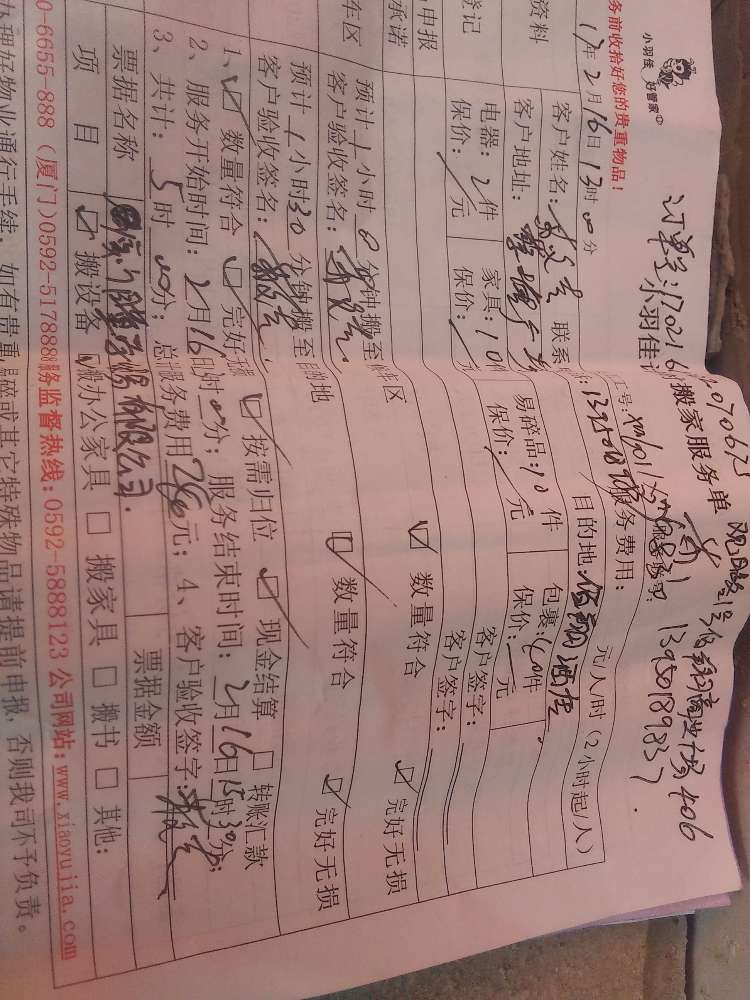 小羽佳 好管家
小羽佳
搬家服务单
订单号:170216
070673
406
13950189837
务前收拾好您的贵重物品!
17年2月16日13时00分
资料
客户姓名:
联系
工号:
服务费用:
元/人/时(2小时起/人)
客户地址:
目的地:佰翔酒店
登记
电器:2件
家具:10件
易碎品:10件
包裹:40件
保价:/元
保价:/元
保价:/元
保价:/元
申报
承诺
客户签字:
客户签字:
车区
预计1小时0分钟搬至
车区
数量符合
完好无损
客户验收签名:
预计1小时30分钟搬至
的地
数量符合
完好无损
客户验收签名:
1、数量符合
完好无损
按需归位
现金结算
转账汇款
2、服务开始时间:2月16日
时00分;服务结束时间:2月16日15时30分;
3、共计:5时00分;总服务费用
元;4、客户验收签字:
票据名称
有限公司.
票据金额
项目
搬设备
搬办公家具
搬家具
搬书
其他:
0-6655-888 (厦门)0592-517888
服务监督热线:0592-5888123 公司网站:www.xiaoyujia.com
办理好物业通行手续,如有贵重
易碎或其它特殊物品请提前申报,否则我司不予负责。